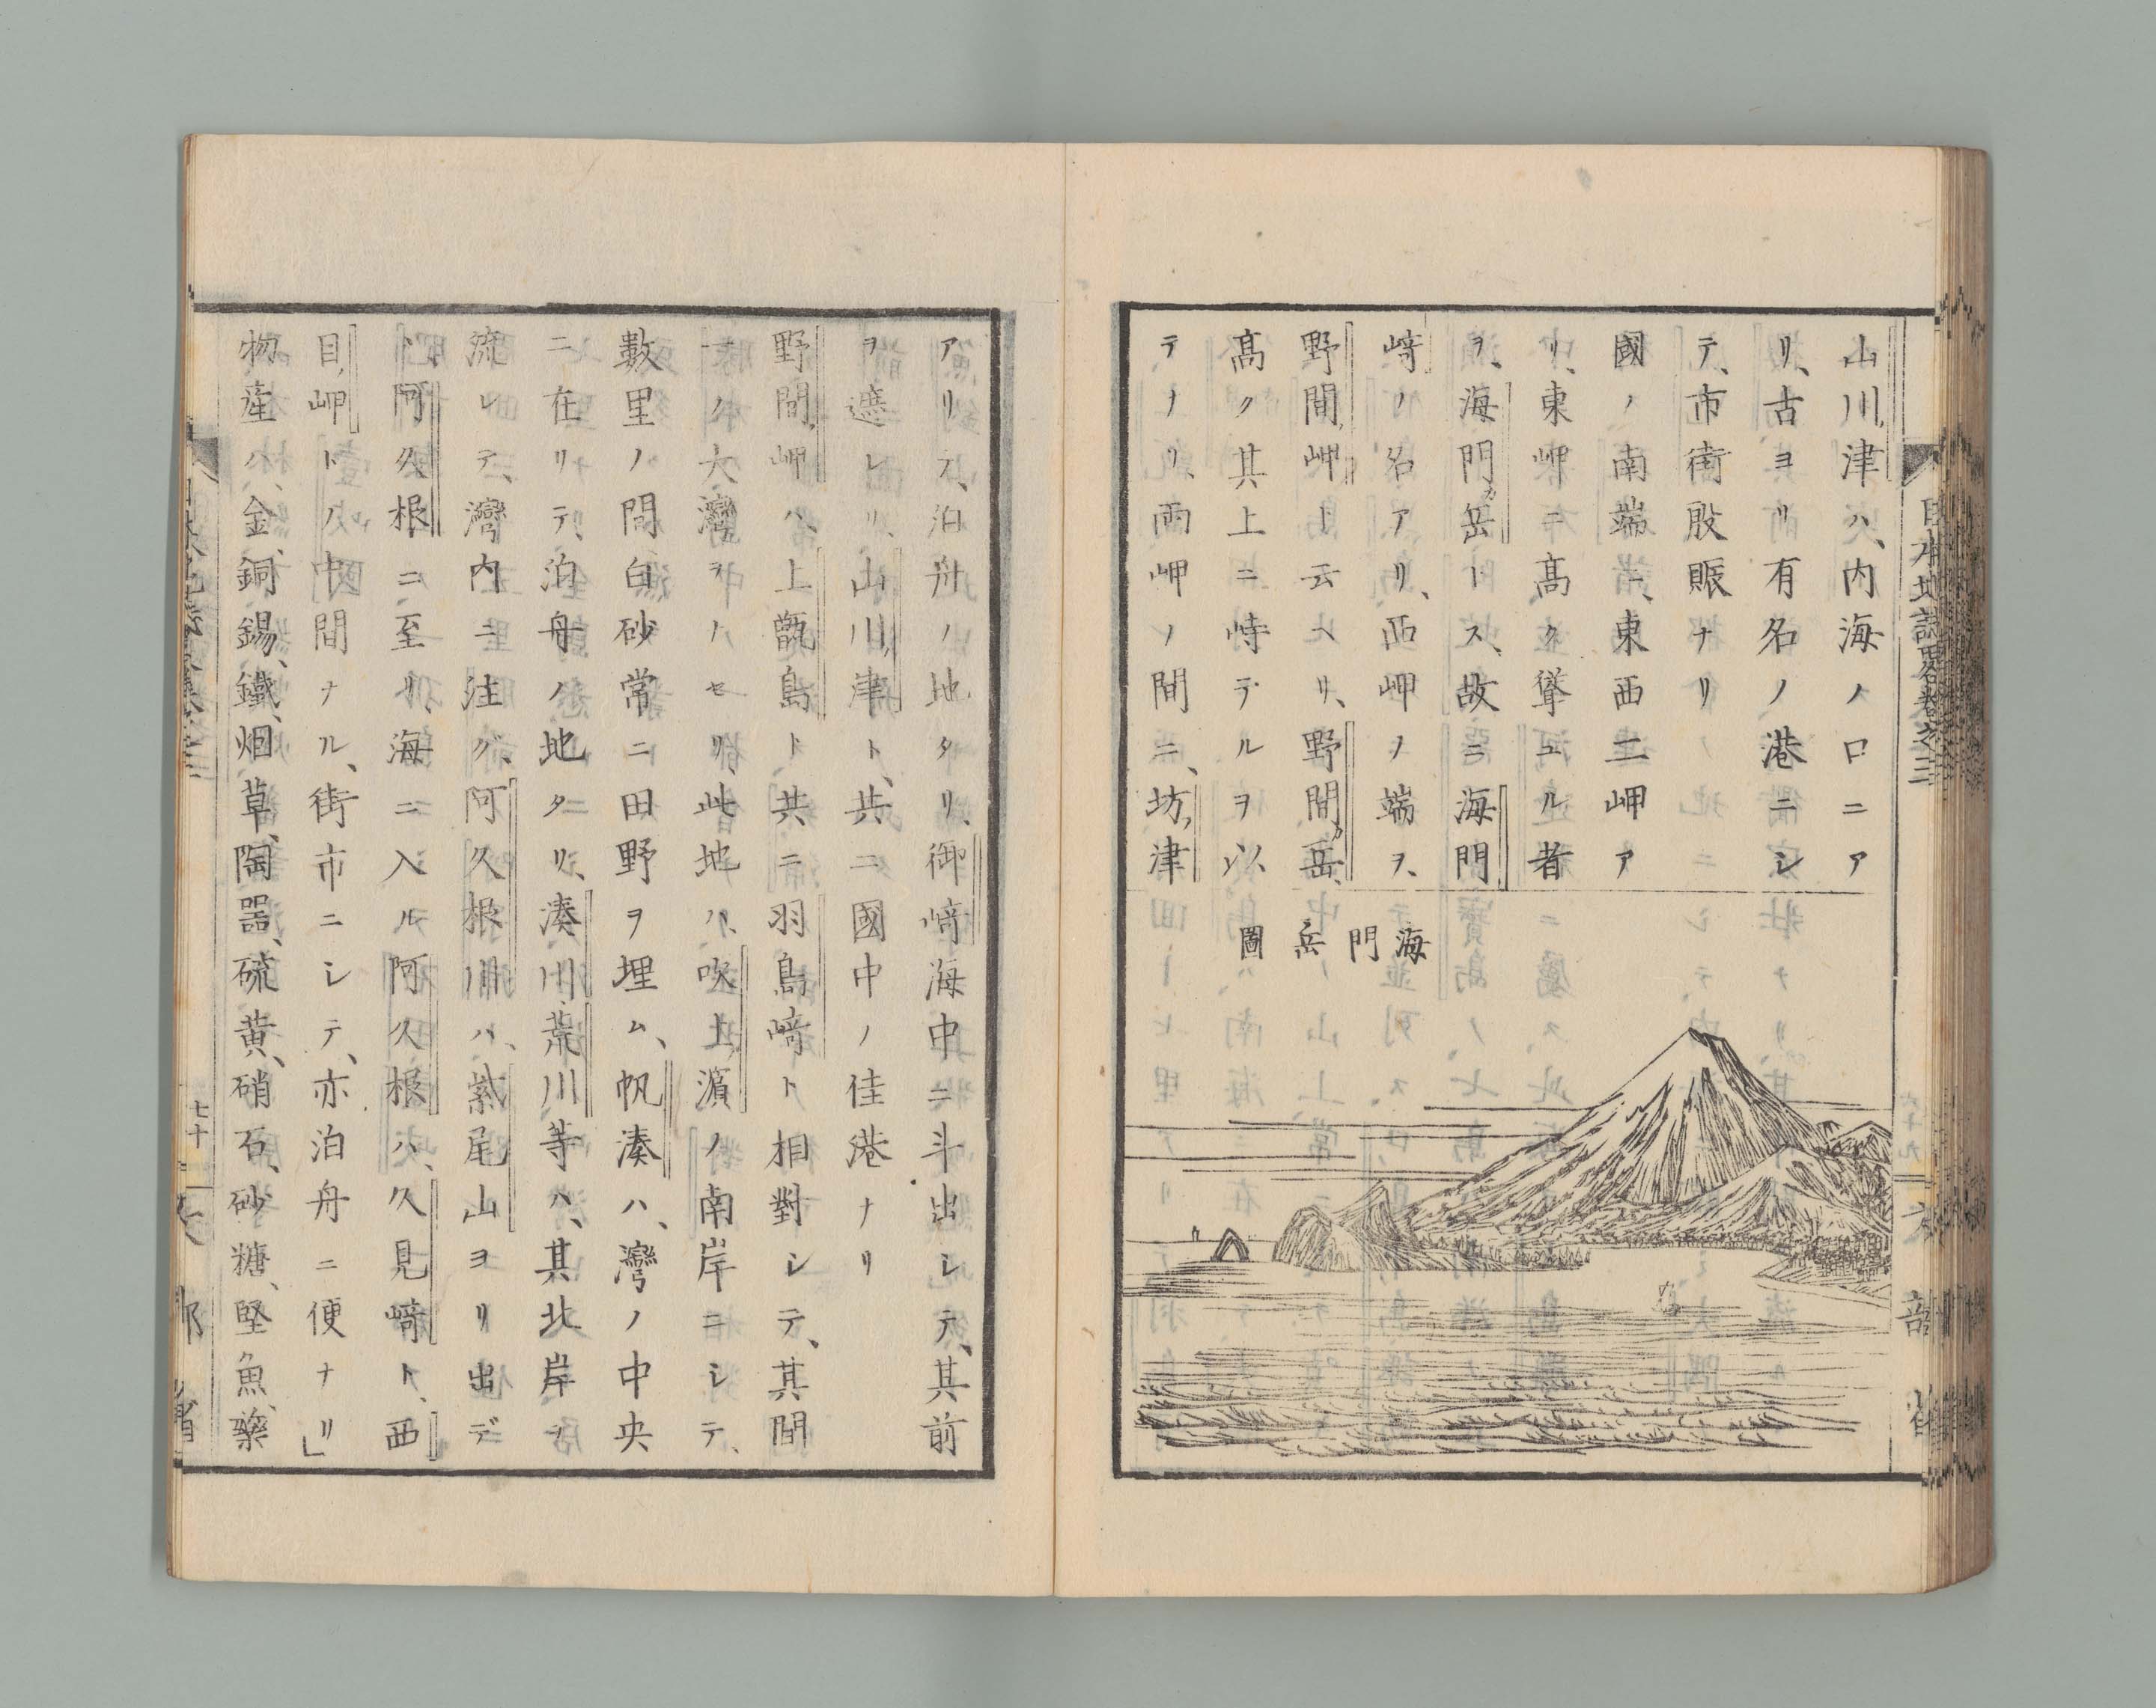 日本地誌略卷之三
山川津ハ、内海ノ口ニア
リ、古ヨリ有名ノ港ニシ
テ、市街殷賑ナリ
國ノ南端ニ、東西二岬ア
リ、東岬ニ高ク聳ユル者
ヲ、海門ガ岳トス、故ニ海門
﨑ノ名アリ、西岬ノ端ヲ、
野間岬ト云ヘリ、野間ガ岳、
高ク其上ニ峙テルヲ以
テナリ、兩岬ノ間ニ、坊津
海門岳圖
アリテ、泊舟ノ地タリ、御﨑海中ニ斗出シテ、其前
ヲ遮レリ、山川津ト、共ニ國中ノ佳港ナリ
野間岬ハ、上甑島ト共ニ羽島﨑ト相對シテ、其間
一ノ大灣ヲナセリ、此地ハ、吹上濵ノ南岸ニシテ、
數里ノ間白砂常ニ田野ヲ埋ム、帆湊ハ、灣ノ中央
ニ在リテ、泊舟ノ地タリ、湊川、荒川等ハ、其北岸ヲ
流レテ、灣内ニ注グ、阿久根川ハ、紫尾山ヨリ出デ
、阿久根ニ至リ、海ニ入ル阿久根ハ、久見﨑ト、西
目岬トノ中間ナル、街市ニシテ、亦泊舟ニ便ナリ」
物産ハ、金、銅、錫、鐵、烟草、陶器、硫黄、硝石、砂糖、堅魚、藥
七十